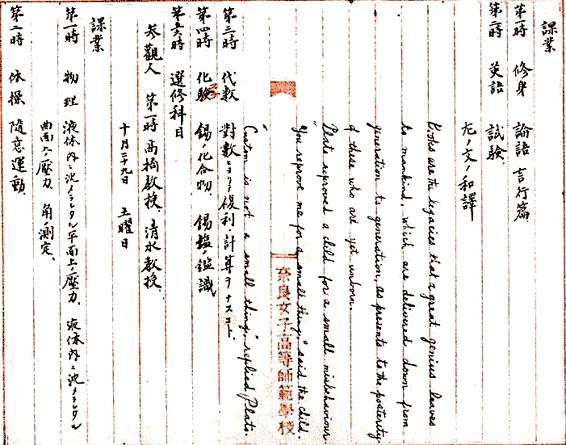 課業
第一時 修身 論語 言行篇
第二時 英語 試験
左ノ文ノ和譯
Books are the legacies that a great genius leaves
to mankind, which are delivered down from
generation to generation, as presents to the posterity
of those who are yet unborn.
Plato reproved a child for a small misbehaviour
"You reprove me for a small thing," said the child.
"Custom is not a small thing," replied Plato.
奈良女子高等師範學校
第三時 代數 對數ニヨリ複利ノ計算ヲナスコト、
第四時 化 錫ノ化合物、錫塩ノ鑑識
第五六時 選修科目
参觀人 第一時 高橋教授、清水教授、
十月二十九日 土曜日
課業
第一時 物理 液体内ニ沈メラレタル平面上ノ壓力、液体内ニ沈メラレタル
曲面上ノ壓力、角ノ測定、
第二時 体操 隨意運動、